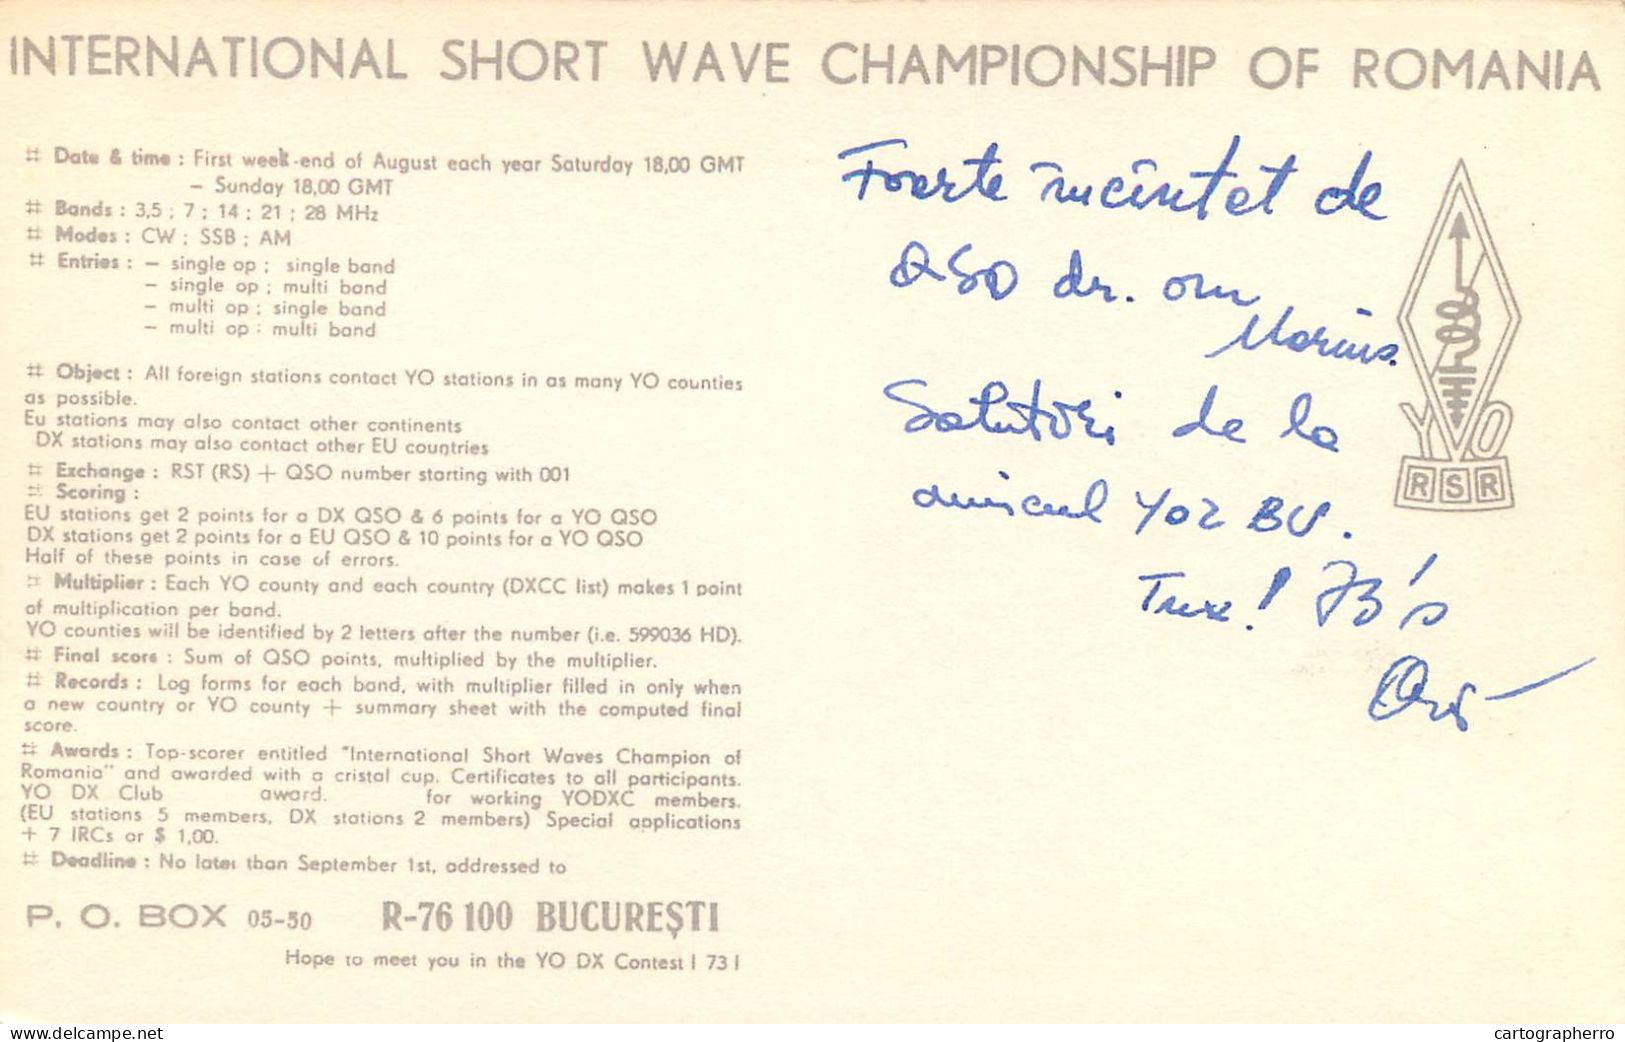 INTERNATIONAL SHORT WAVE CHAMPIONSHIP OF ROMANIA
# Date & time : First week-end of August each year Saturday 18,00 GMT
– Sunday 18,00 GMT
# Bands : 3,5 ; 7 ; 14 ; 21 ; 28 MHz
# Modes : CW ; SSB ; AM
# Entries : – single op ; single band
– single op ; multi band
– multi op ; single band
– multi op : multi band
# Object : All foreign stations contact YO stations in as many YO counties
as possible.
Eu stations may also contact other continents
DX stations may also contact other EU countries
# Exchange : RST (RS) + QSO number starting with 001
# Scoring :
EU stations get 2 points for a DX QSO & 6 points for a YO QSO
DX stations get 2 points for a EU QSO & 10 points for a YO QSO
Half of these points in case of errors.
# Multiplier : Each YO county and each country (DXCC list) makes 1 point
of multiplication per band.
YO counties will be identified by 2 letters after the number (i.e. 599036 HD).
# Final score : Sum of QSO points, multiplied by the multiplier.
# Records : Log forms for each band, with multiplier filled in only when
a new country or YO county + summary sheet with the computed final
score.
# Awards : Top-scorer entitled "International Short Waves Champion of
Romania" and awarded with a cristal cup. Certificates to all participants.
YO DX Club award. for working YODXC members.
(EU stations 5 members, DX stations 2 members) Special applications
+ 7 IRCs or $ 1,00.
# Deadline : No later than September 1st, addressed to
P. O. BOX 05-50 R-76 100 BUCUREȘTI
Hope to meet you in the YO DX Contest ! 73 !
Foarte încîntat de
QSO dr. om
Marius.
Salutări de la
amicul YO2 BV.
Tnx! 73's
YO
RSR
www.delcampe.net
cartographerro